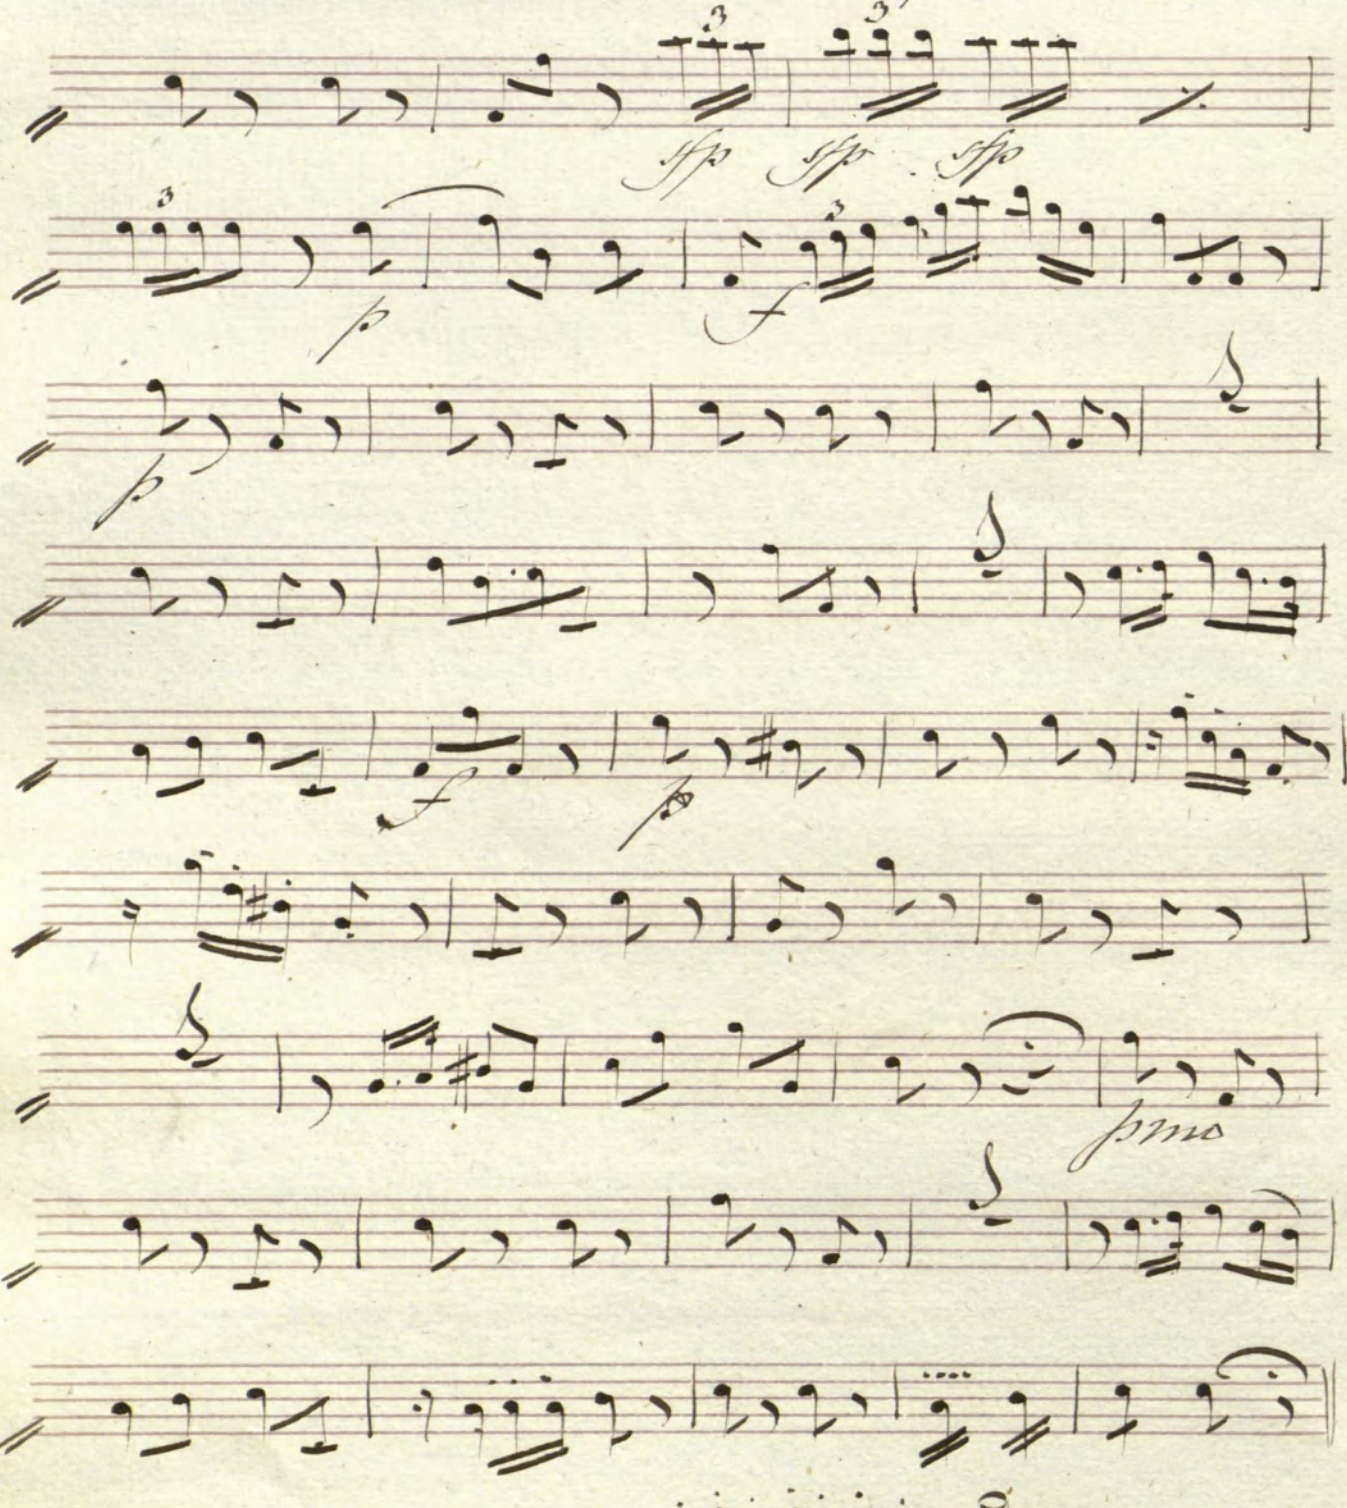 3 3
sfp sfp sfp
3 3
p f
p
f p
pmo